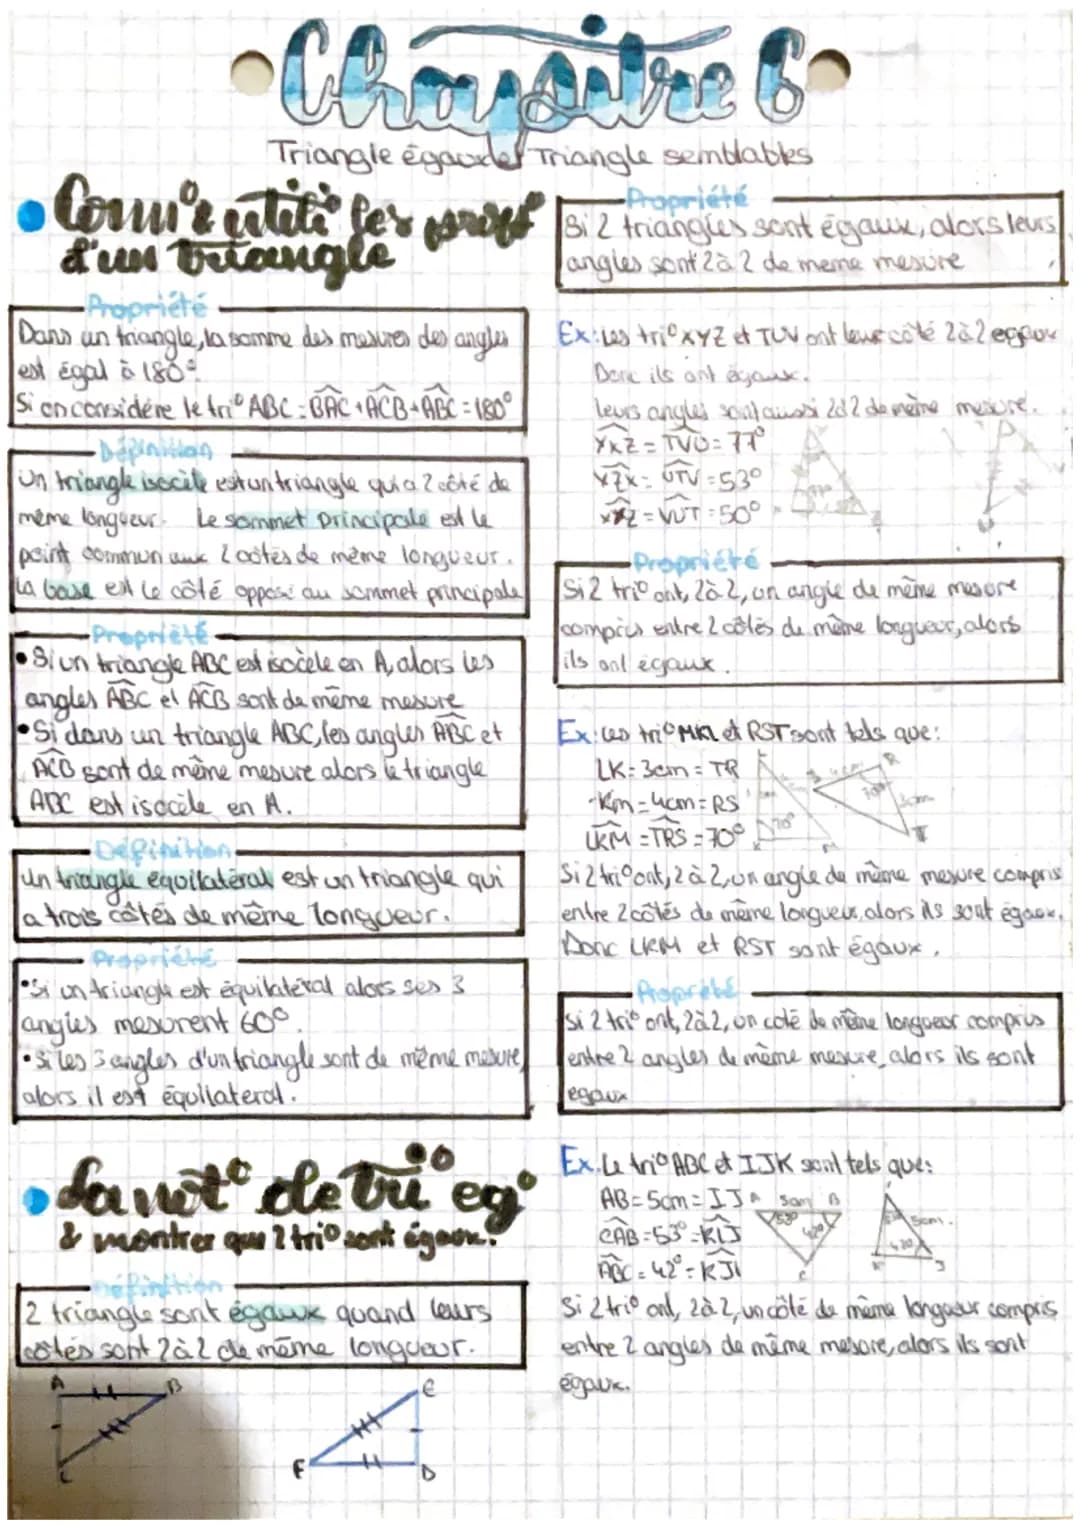 Chapitre 6
Triangle égaux et Triangle semblables
d'un triangle
Propriété
Dans un triangle, la somme des mesures des angles
est égal à 180°.
Si on considère le tri° ABC : BAC + ACB + ABC = 180°
Définition
Un triangle isocèle est un triangle qui a 2 côté de
même longueur. Le sommet principale est le
point commun aux 2 côtés de même longueur.
La base est le côté opposé au sommet principale
Propriété
• Si un triangle ABC est isocèle en A, alors les
angles ABC et ACB sont de même mesure
• Si dans un triangle ABC, les angles ABC et
ACB sont de même mesure alors le triangle
ABC est isocèle en A.
Définition
Un triangle équilatéral est un triangle qui
a trois côtés de même longueur.
Propriété
• Si un triangle est équilatéral alors ses 3
angles mesurent 60°.
• Si les 3 angles d'un triangle sont de même mesure,
alors il est équilateral.
La not° de tri° eg°
& montrer que 2 tri° sont égaux.
Définition
2 triangle sont égaux quand leurs
côtés sont 2 à 2 de même longueur.
A B
C
E
F D
Propriété
Si 2 triangles sont égaux, alors leurs
angles sont 2 à 2 de meme mesure
Ex : Les tri° XYZ et TUV ont leur côté 2 à 2 egaux
Donc ils ont égaux.
leurs angles sont aussi 2 à 2 de même mesure.
YXZ = TVU = 77°
YZX = UTV = 53°
= VUT = 50°
Propriété
Si 2 tri° ont, 2 à 2, un angle de même mesure
compris entre 2 côtés de même longueur, alors
ils ont égaux.
Ex : Les tri° MKL et RST sont tels que :
LK = 3cm = TR
KM = 4cm = RS
LKM = TRS = 70°
Si 2 tri° ont, 2 à 2, un angle de même mesure compris
entre 2 côtés de même longueur, alors ils sont égaux.
Donc LKM et RST sont égaux.
Propriété
Si 2 tri° ont, 2 à 2, un coté de même longueur compris
entre 2 angles de même mesure, alors ils sont
egaux
Ex. Le tri° ABC et IJK sont tels que :
AB = 5cm = IJ
CAB = 53° = KIJ
ABC = 42° = KJI
A 5cm B
53° 42°
C
5cm.
42°
K J
Si 2 tri° ont, 2 à 2, un côté de même longueur compris
entre 2 angles de même mesure, alors ils sont
égaux.